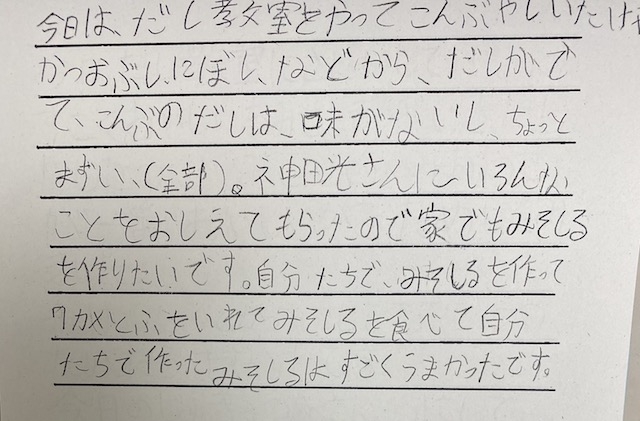 今日は、だし教室をやってこんぶやしいたけ
かつおぶし、にぼし、などから、だしがで
て、こんぶのだしは、味がないし、ちょっと
まずい、(全部)。神田光さんにいろんな
ことをおしえてもらったので家でもみそしる
を作りたいです。自分たちで、みそしるを作って
ワカメとふをいれてみそしるを食べて自分
たちで作ったみそしるはすごくうまかったです。